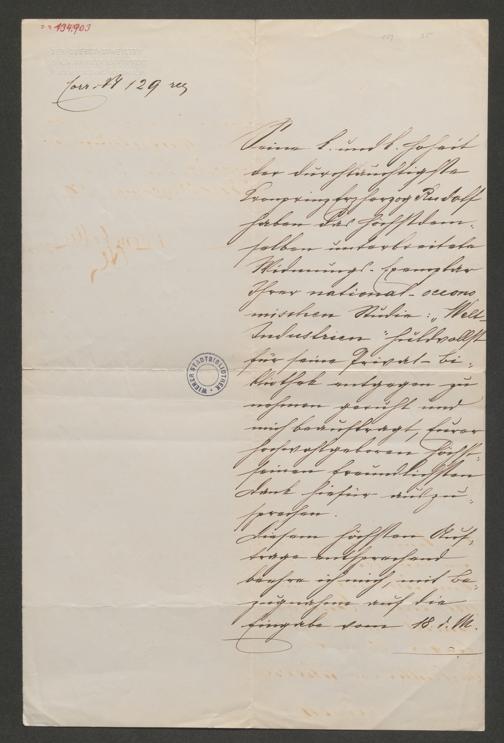 134.903
Corr. N 129 res
Seine k. und k. Hoheit
der durchlauchtigste
Kronprinz Erzherzog Rudolf
haben das höchstdem-
selben unterbreitete
Widmungs-Exemplar
Ihrer national-oecono
mischen Studie: „Welt-
Industrien" huldvollst
für seine Privat-Bi-
bliothek entgegen zu
nehmen geruht und
mich beauftragt, Eurer
Hochwohlgeboren höchst-
seinen freundlichsten
Dank hiefür auszu-
sprechen.
Diesem höchsten Auf-
trage entsprechend
beehre ich mich, mit Be-
zugnahme auf die
Eingabe vom 18. d. M.
WIENER STADTBIBLIOTHEK